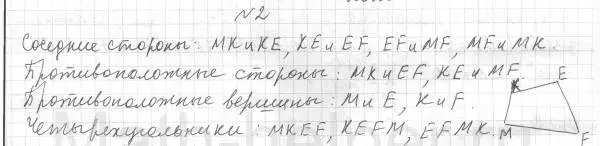 №2
Соседние стороны: МК и КЕ, КЕ и EF, EF и MF, MF и МК.
Противоположные стороны: МК и EF, КЕ и MF.
Противоположные вершины: М и Е, К и F.
Четырехугольники: MKEF, KEFM, EFMK.
K E
M F